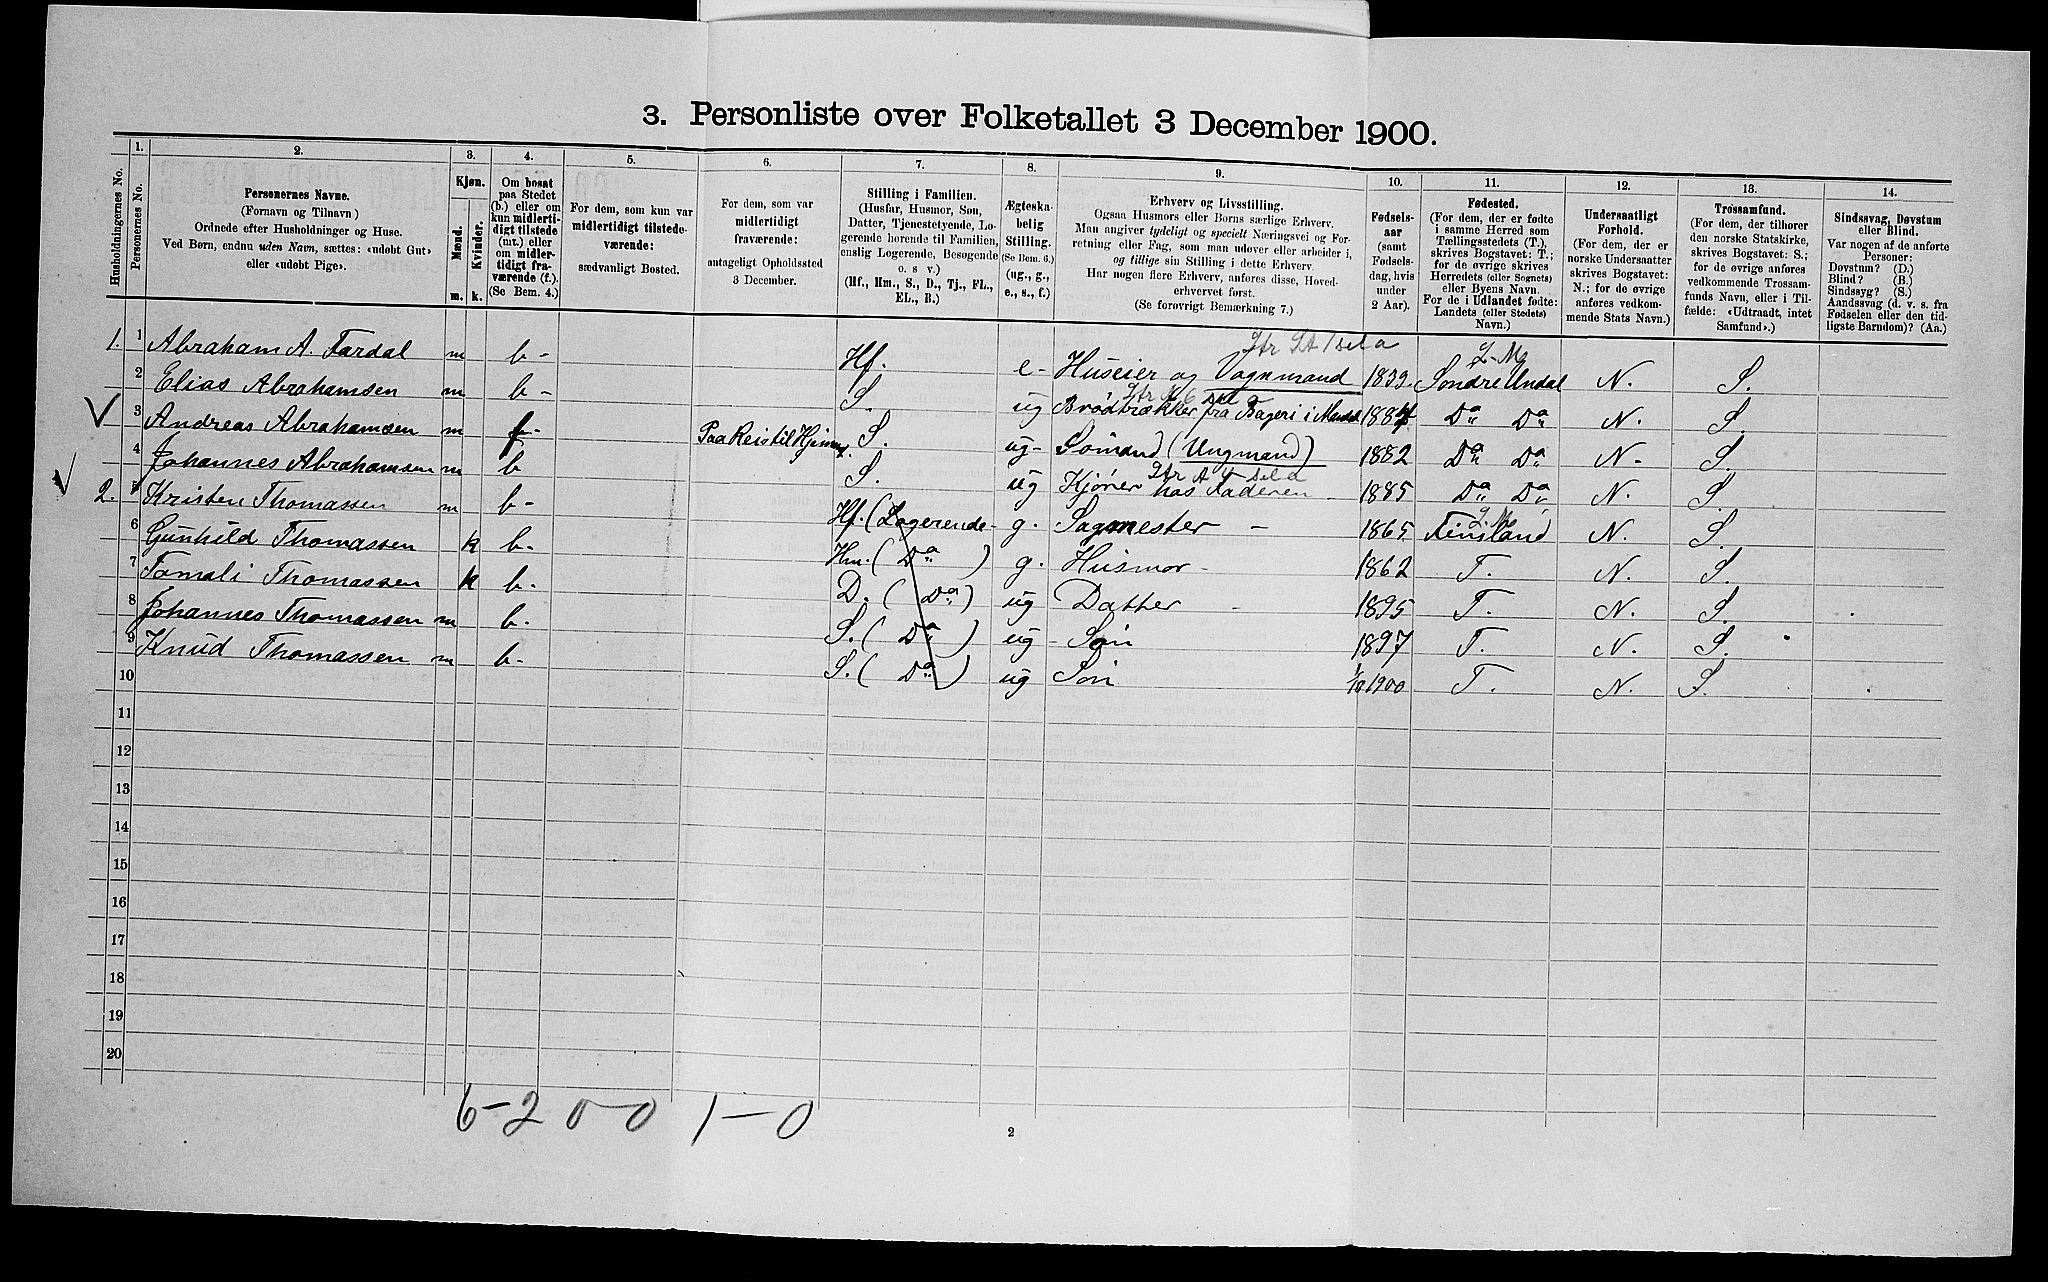 3. Personliste over Folketallet 3 December 1900.
Husholdningernes No.
1. Personernes No.
2. Personernes Navne.
(Fornavn og Tilnavn)
Ordnede efter Husholdninger og Huse.
Ved Børn, endnu uden Navn, sættes: «udøbt Gut»
eller «udøbt Pige».
3. Kjøn.
Mænd. Kvinder.
m. k.
4. Om bosat
paa Stedet
(b.) eller om
kun midlerti-
digt tilstede
(mt.) eller
om midler-
tidigt fra-
værende (f.).
(Se Bem. 4.)
5. For dem, som kun var
midlertidigt tilstede-
værende:
sædvanligt Bosted.
6. For dem, som var
midlertidigt
fraværende:
antageligt Opholdssted
3 December.
7. Stilling i Familien.
(Husfar, Husmor, Søn,
Datter, Tjenestetyende, Lo-
gerende hørende til Familien,
enslig Logerende, Besøgende
o. s v.)
(Hf., Hm., S., D., Tj., FL.,
EL., B.)
8. Ægteska-
belig
Stilling.
(Se Bem. 6.)
(ug., g.,
e., s., f.)
9. Erhverv og Livsstilling.
Ogsaa Husmors eller Børns særlige Erhverv.
Man angiver tydeligt og specielt Næringsvei og For-
retning eller Fag, som man udøver eller arbeider i,
og tillige sin Stilling i dette Erhverv.
Har nogen flere Erhverv, anføres disse, Hoved-
erhvervet først.
(Se forøvrigt Bemærkning 7.)
10. Fødsels-
aar
(samt
Fødsels-
dag, hvis
under
2 Aar).
11. Fødested.
(For dem, der er fødte
i samme Herred som
Tællingsstedets (T.),
skrives Bogstavet: T.;
for de øvrige skrives
Herredets (eller Sognets)
eller Byens Navn.
For de i Udlandet fødte:
Landets (eller Stedets)
Navn.)
12. Undersaatligt
Forhold.
(For dem, der er
norske Undersaatter
skrives Bogstavet:
N.; for de øvrige
anføres vedkom-
mende Stats Navn.)
13. Trossamfund.
(For dem, der tilhører
den norske Statskirke,
skrives Bogstavet: S.;
for de øvrige anføres
vedkommende Trossam-
funds Navn, eller i Til-
fælde: «Udtraadt, intet
Samfund».)
14. Sindssvag, Døvstum
eller Blind.
Var nogen af de anførte
Personer:
Døvstum? (D.)
Blind? (B.)
Sindssyg? (S.)
Aandssvag (d. v. s. fra
Fødselen eller den tid-
ligste Barndom)? (Aa.)
1. 1 Abraham A. Fardal m b- Hf. e- Huseier og Vognmand 1839. Søndre Undal N. S.
2 Elias Abrahamsen m b- S. ug Brødtrækker fra Bageri i Mandal 1884 Do Do N. S.
3 Andreas Abrahamsen m f- Paa Reis til Hjemmet S. ug- Sømand (Ungmand) 1882 Do Do N. S.
4 Johannes Abrahamsen m b S. ug Kjører hos Faderen 1885 Do Do N. S.
2. 5 Kristen Thomassen m b- Hf. (Logerende- g. Sagmester 1865 Finsland N. S.
6 Gunhild Thomassen k b- Hm. (Do) g. Husmor 1862 T. N. S.
7 Tomali Thomassen k b- D. (Do) ug Datter 1895 T. N. S.
8 Johannes Thomassen m b. S. (Do) ug- Søn 1897 T. N. S.
9 Knud Thomassen m b- S. (Do) ug Søn 1/10 1900 T. N. S.
10
11
12
13
14
15
16
17
18
19
20
6-2 0-0 1-0
2